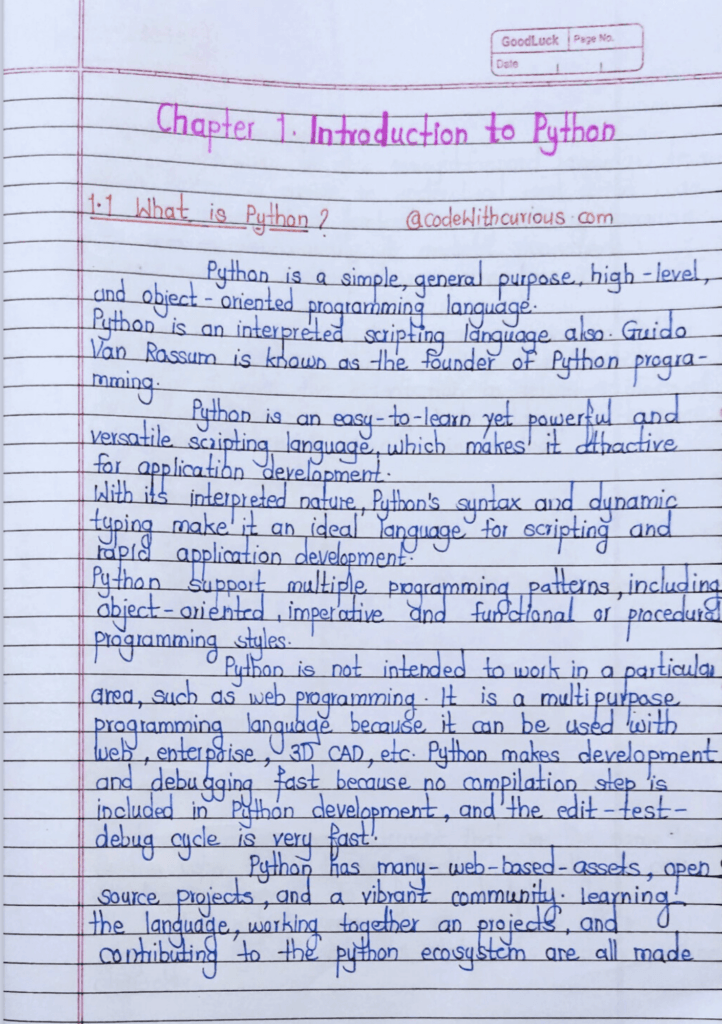 GoodLuck Page No.
Date
Chapter 1. Introduction to Python
1.1 What is Python? @codeWithcurious.com
Python is a simple, general purpose, high-level,
and object-oriented programming language.
Python is an interpreted scripting language also. Guido
Van Rossum is known as the founder of Python progra-
mming.
Python is an easy-to-learn yet powerful and
versatile scripting language, which makes it attractive
for application development.
With its interpreted nature, Python's syntax and dynamic
typing make it an ideal language for scripting and
rapid application development.
Python support multiple programming patterns, including
object-oriented, imperative and functional or procedural
programming styles.
Python is not intended to work in a particular
area, such as web programming. It is a multipurpose
programming language because it can be used with
web, enterprise, 3D CAD, etc. Python makes development
and debugging fast because no compilation step is
included in Python development, and the edit-test-
debug cycle is very fast.
Python has many-web-based-assets, open
source projects, and a vibrant community. learning
the language, working together an projects, and
contributing to the python ecosystem are all made